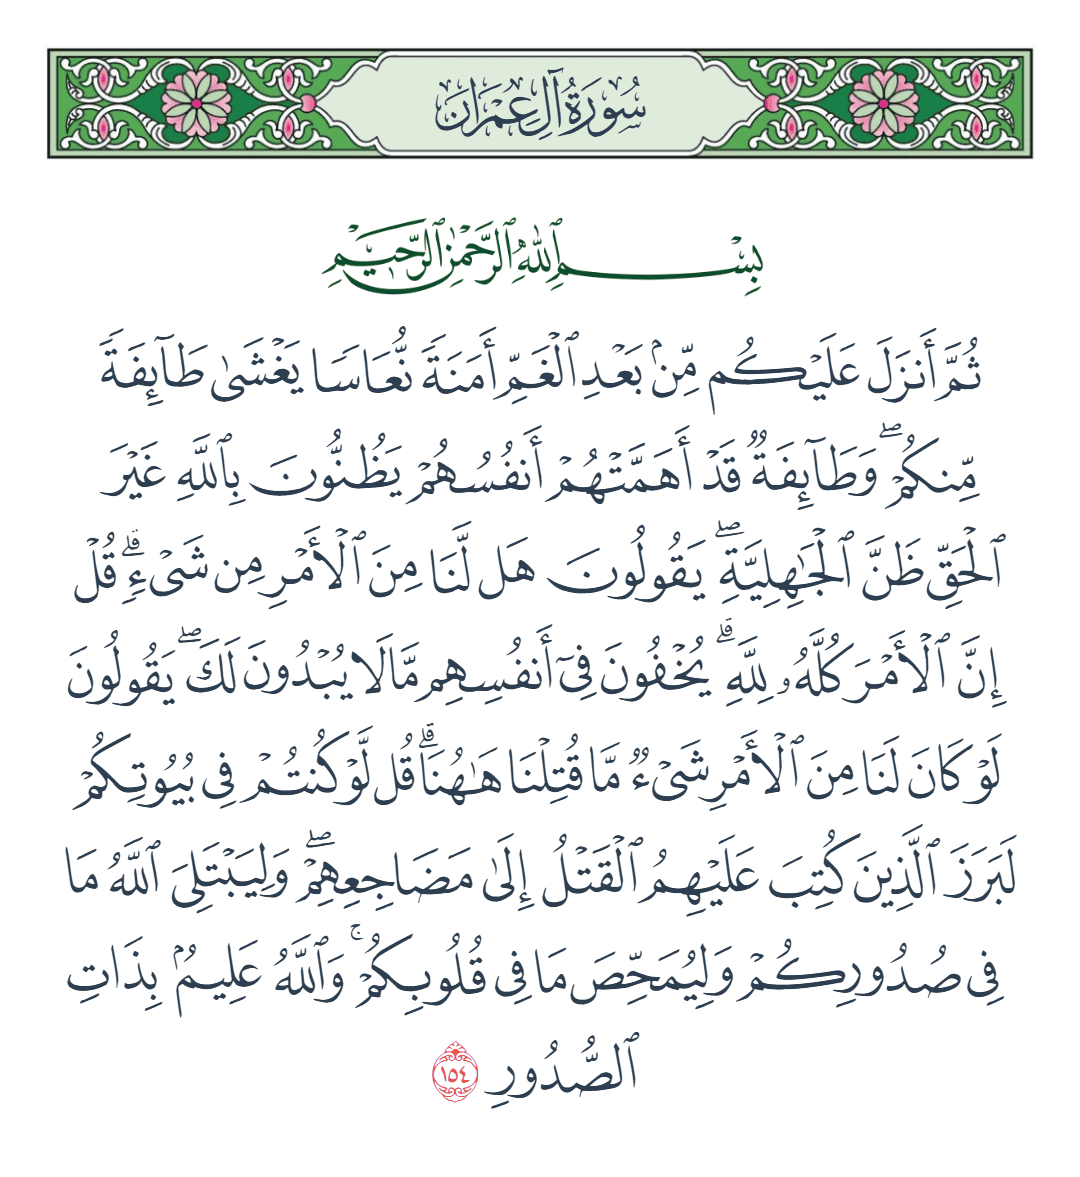 سُورَةُ آلِ عِمْرَانَ
بِسْمِ ٱللَّهِ ٱلرَّحْمَٰنِ ٱلرَّحِيمِ
ثُمَّ أَنزَلَ عَلَيْكُم مِّنۢ بَعْدِ ٱلْغَمِّ أَمَنَةً نُّعَاسًا يَغْشَىٰ طَآئِفَةً
مِّنكُمْ ۖ وَطَآئِفَةٌ قَدْ أَهَمَّتْهُمْ أَنفُسُهُمْ يَظُنُّونَ بِٱللَّهِ غَيْرَ
ٱلْحَقِّ ظَنَّ ٱلْجَٰهِلِيَّةِ ۖ يَقُولُونَ هَل لَّنَا مِنَ ٱلْأَمْرِ مِن شَىْءٍ ۗ قُلْ
إِنَّ ٱلْأَمْرَ كُلَّهُۥ لِلَّهِ ۗ يُخْفُونَ فِىٓ أَنفُسِهِم مَّا لَا يُبْدُونَ لَكَ ۖ يَقُولُونَ
لَوْ كَانَ لَنَا مِنَ ٱلْأَمْرِ شَىْءٌ مَّا قُتِلْنَا هَٰهُنَا ۗ قُل لَّوْ كُنتُمْ فِى بُيُوتِكُمْ
لَبَرَزَ ٱلَّذِينَ كُتِبَ عَلَيْهِمُ ٱلْقَتْلُ إِلَىٰ مَضَاجِعِهِمْ ۖ وَلِيَبْتَلِىَ ٱللَّهُ مَا
فِى صُدُورِكُمْ وَلِيُمَحِّصَ مَا فِى قُلُوبِكُمْ ۚ وَٱللَّهُ عَلِيمٌۢ بِذَاتِ
ٱلصُّدُورِ ١٥٤